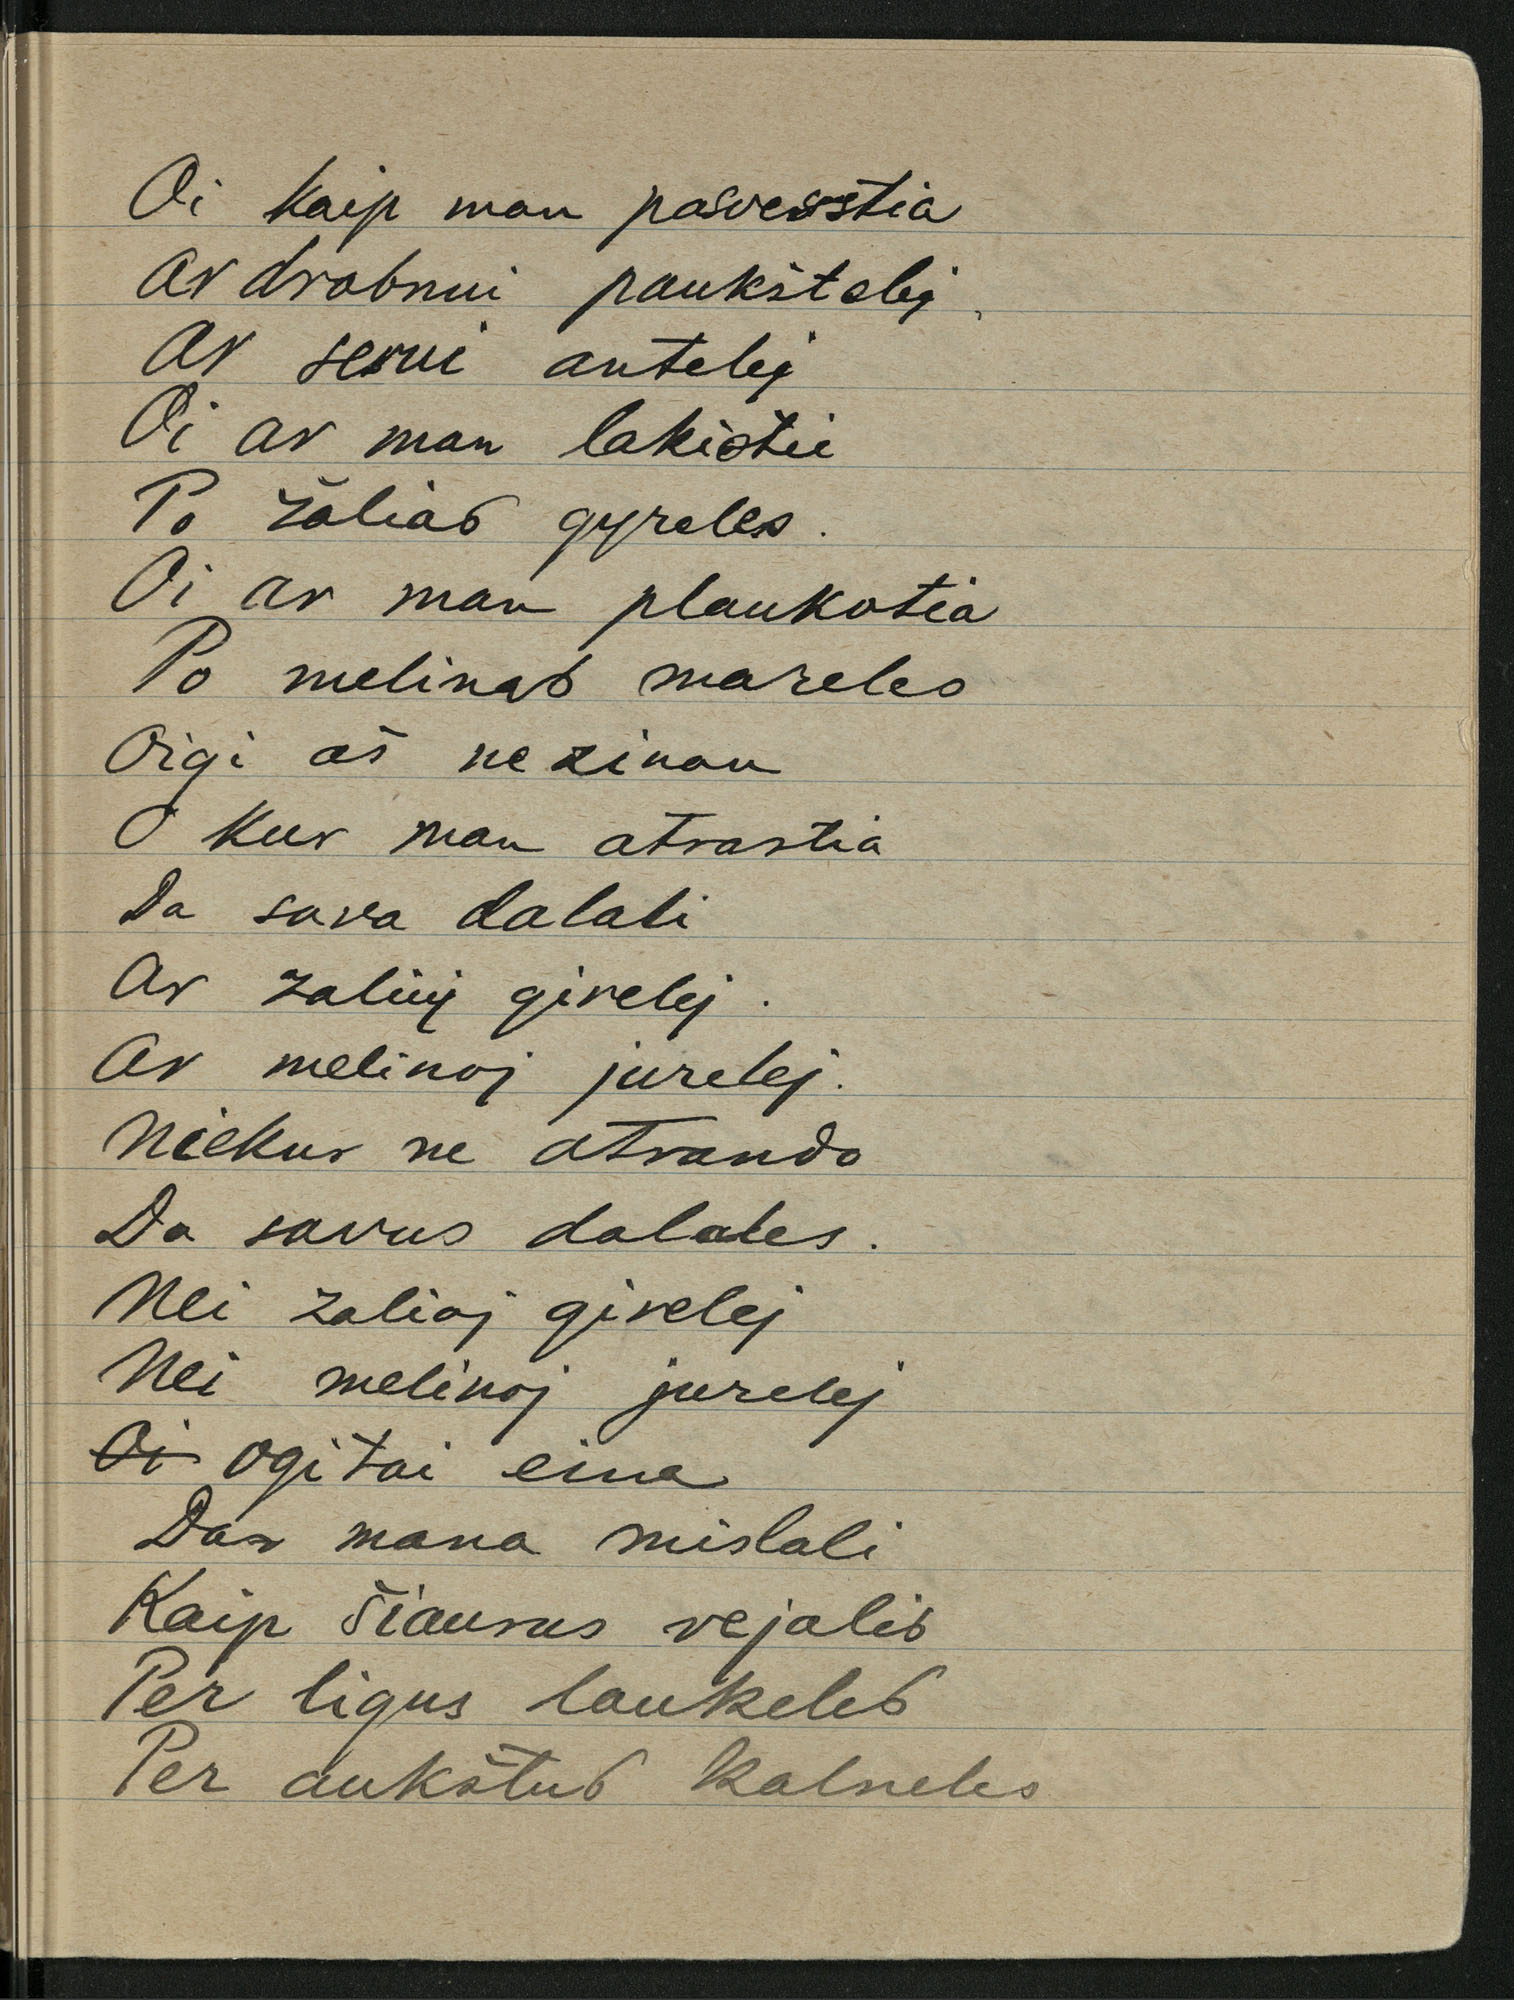 Oi kaip man pasverstia
Ar drabnui paukštelej
Ar serui antelej
Oi ar man lakistii
Po žalias gyreles.
Oi ar man plaukotia
Po melinas mareles
Oigi aš nezinau
O kur man atrastia
Da sava dalali
Ar zaliuj girelej.
Ar melinoj jurelej.
Niekur ne atrando
Da savus dalales.
Nei zalioj girelej
Nei melinoj jurelej
Oi ogi tai eina
Dar mana mislali
Kaip šiaurus vejalis
Per ligus laukeles
Per aukštus kalneles